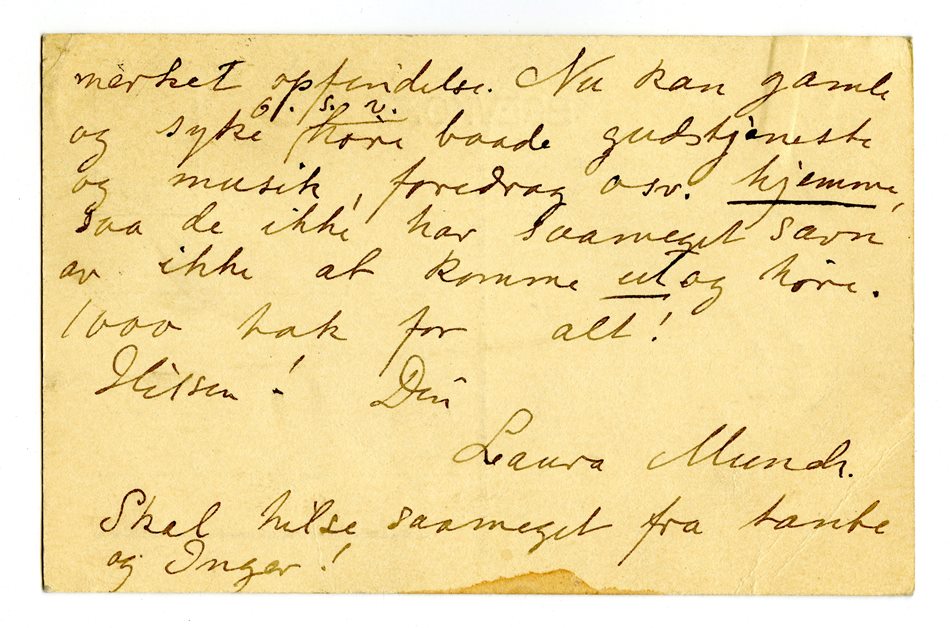 mærket opfindelse. Nu kan gamle
o. s. v.
og syke høre baade gudstjeneste
og musik, foredrag osv. hjemme,
saa de ikke har saameget savn
av ikke at komme ut og høre.
1000 tak for alt!
Hilsen! Din
Laura Munch.
Skal hilse saameget fra tante
og Inger!